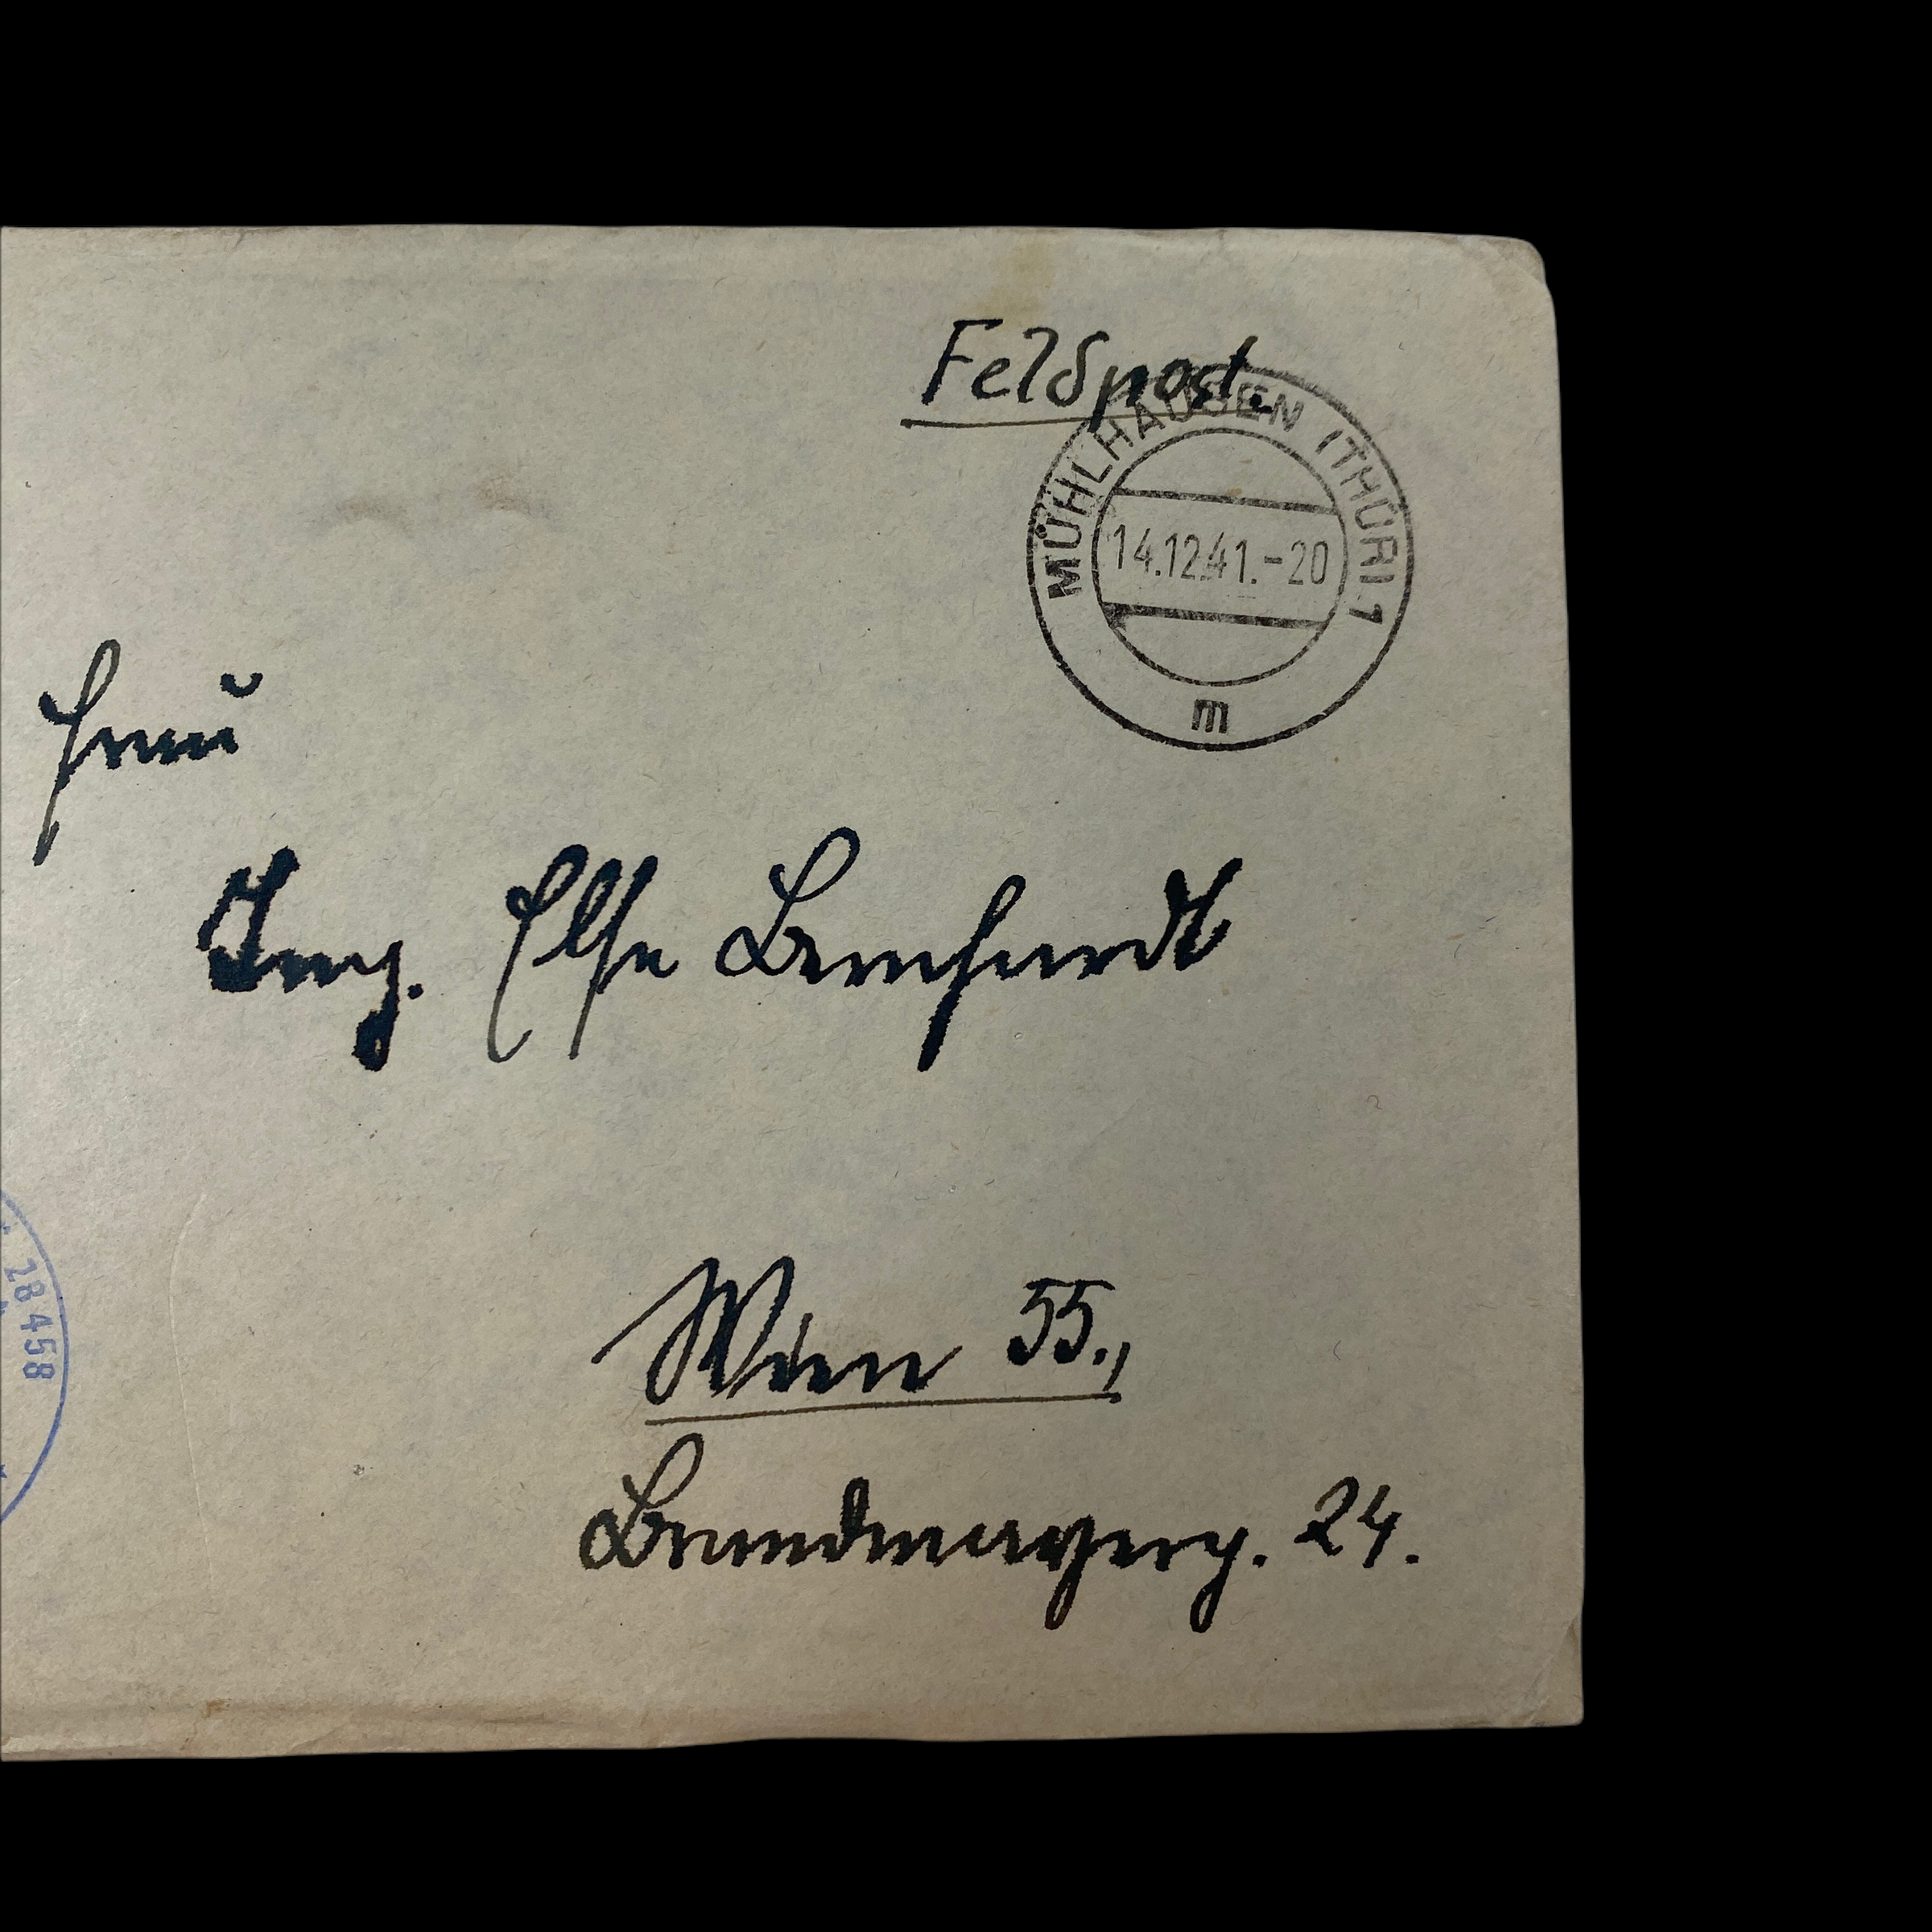 Feldpost.
MÜHLHAUSEN (THÜR) 1
14.12.41.-20
m
Frau
Ing. Else Bernhardt
28458
Wien 55.,
Brandmayerg. 24.